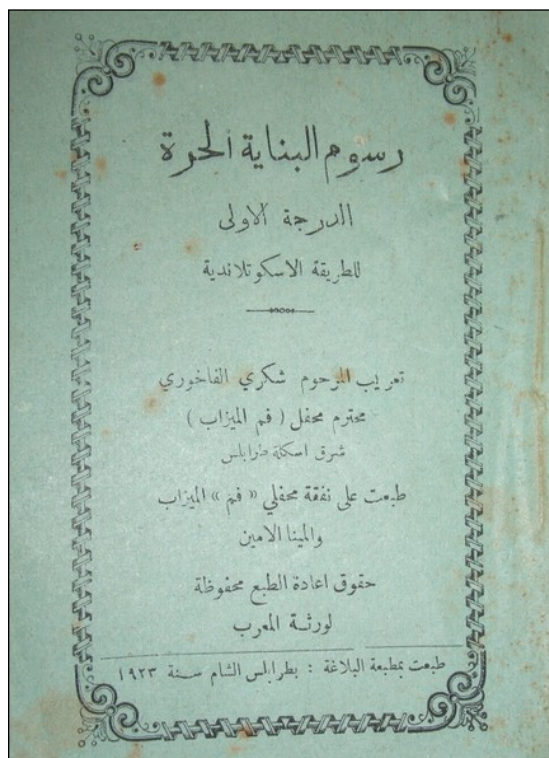 رسوم البناية الحرة
الدرجة الاولى
للطريقة الاسكوتلاندية
تعريب المرحوم شكري الفاخوري
محترم محفل ( فم الميزاب )
شرق اسكلة طرابلس
طبعت على نفقة محفلي « فم » الميزاب
والمينا الامين
حقوق اعادة الطبع محفوظة
لورثة المعرب
طبعت بمطبعة البلاغة : بطرابلس الشام سنة ١٩٢٣